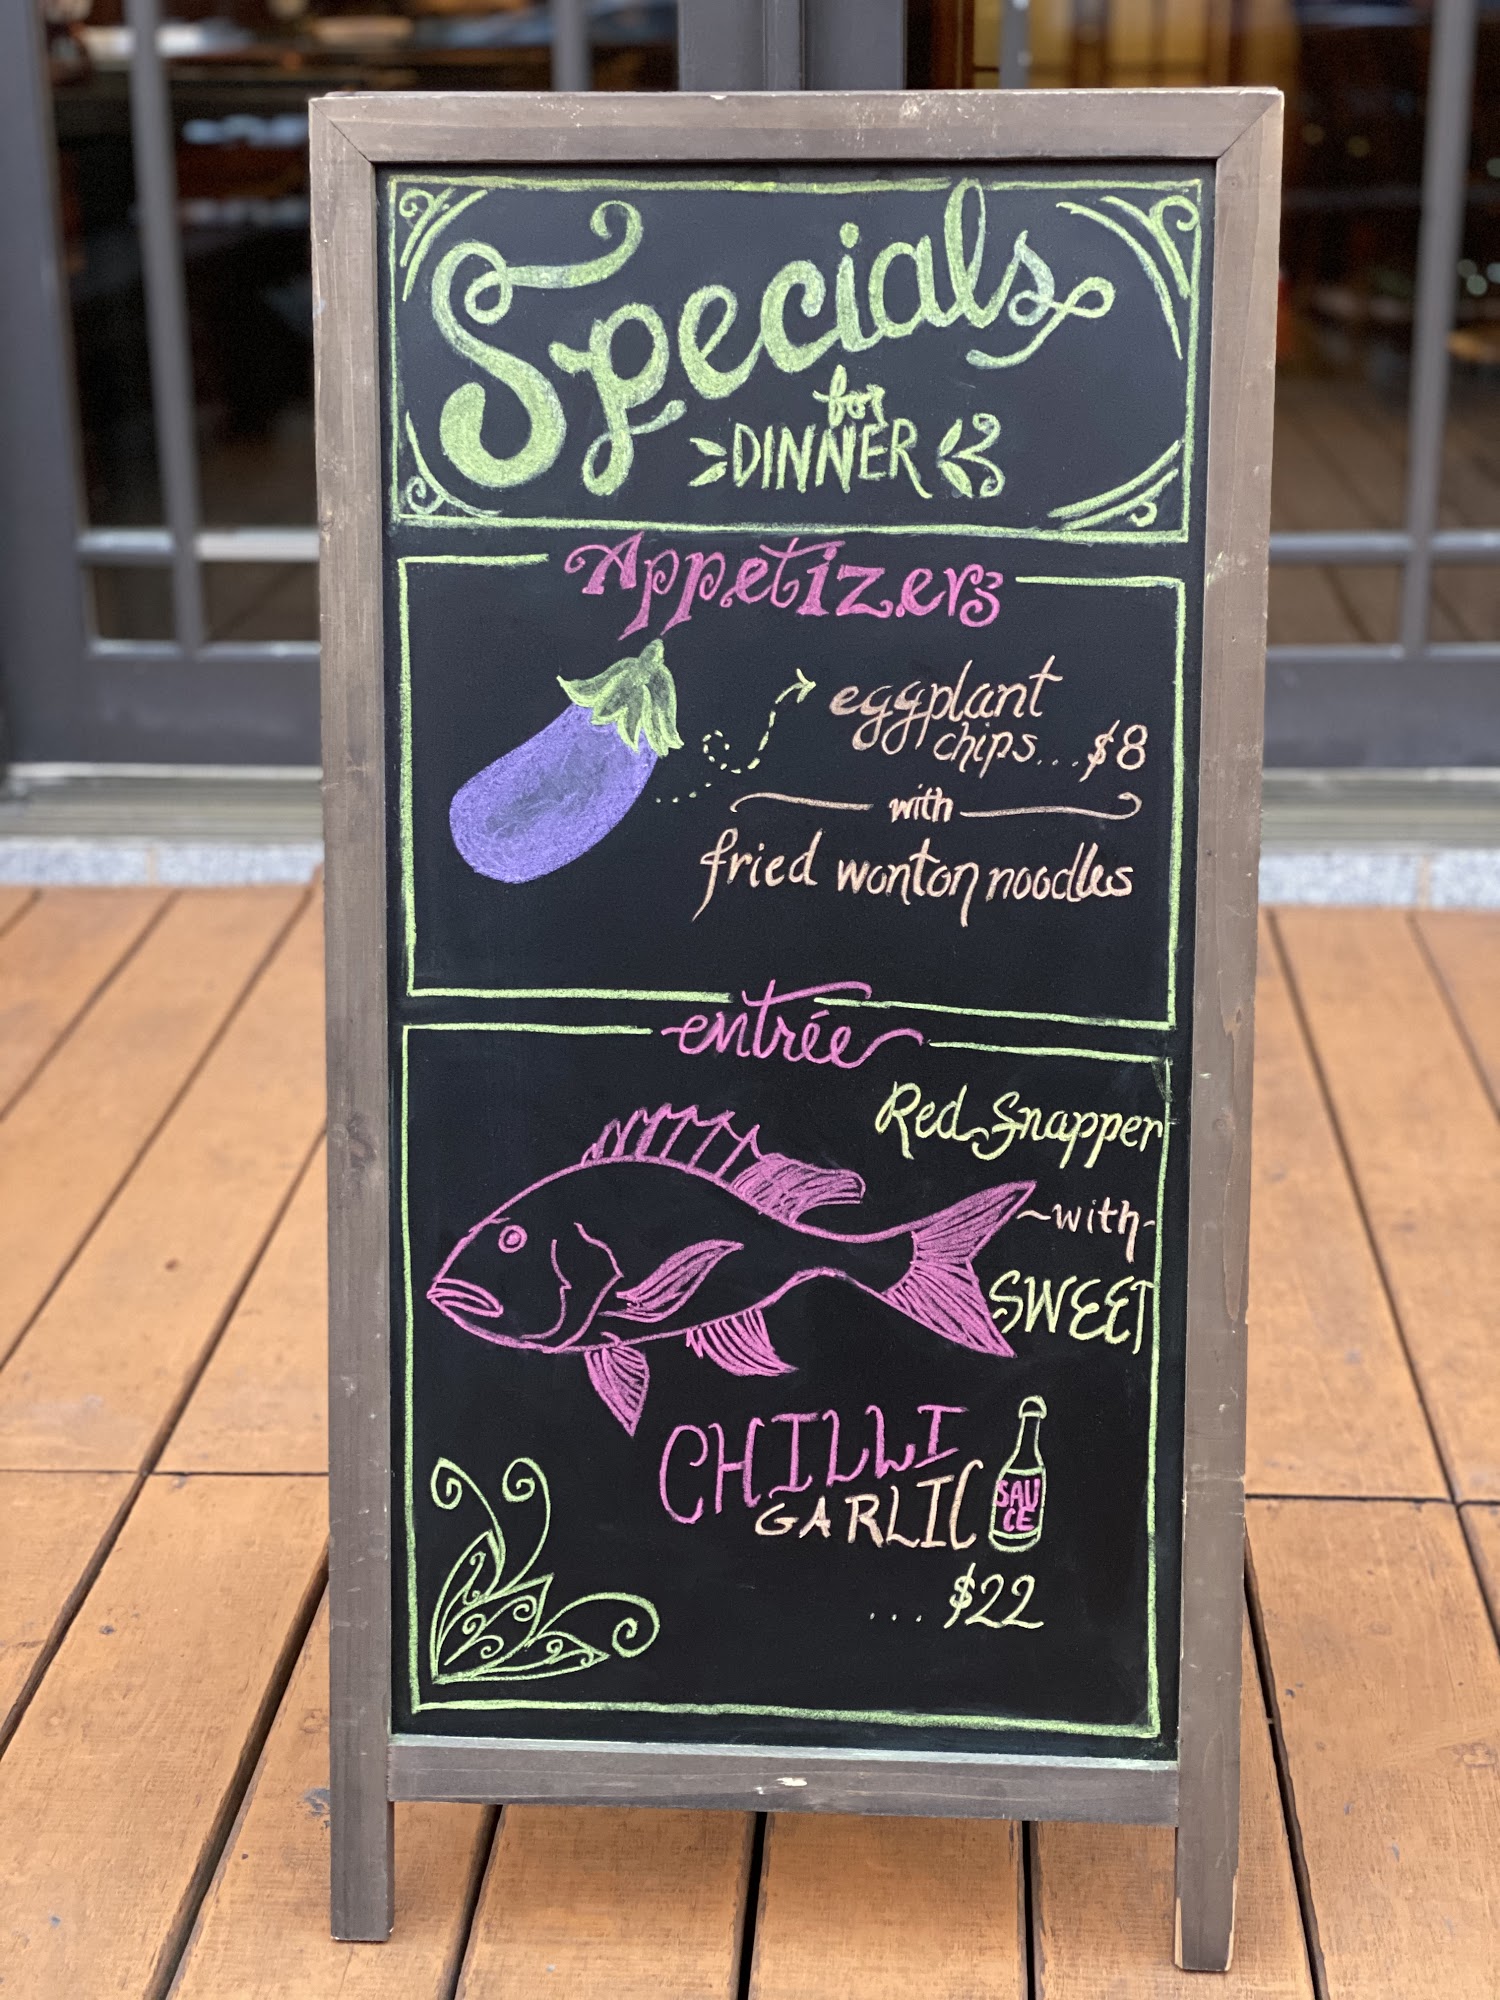 Specials
for
DINNER
Appetizers
eggplant
chips...$8
with
fried wonton noodles
entrée
Red Snapper
~with~
SWEET
CHILLI
GARLIC
SAU
CE
...$22